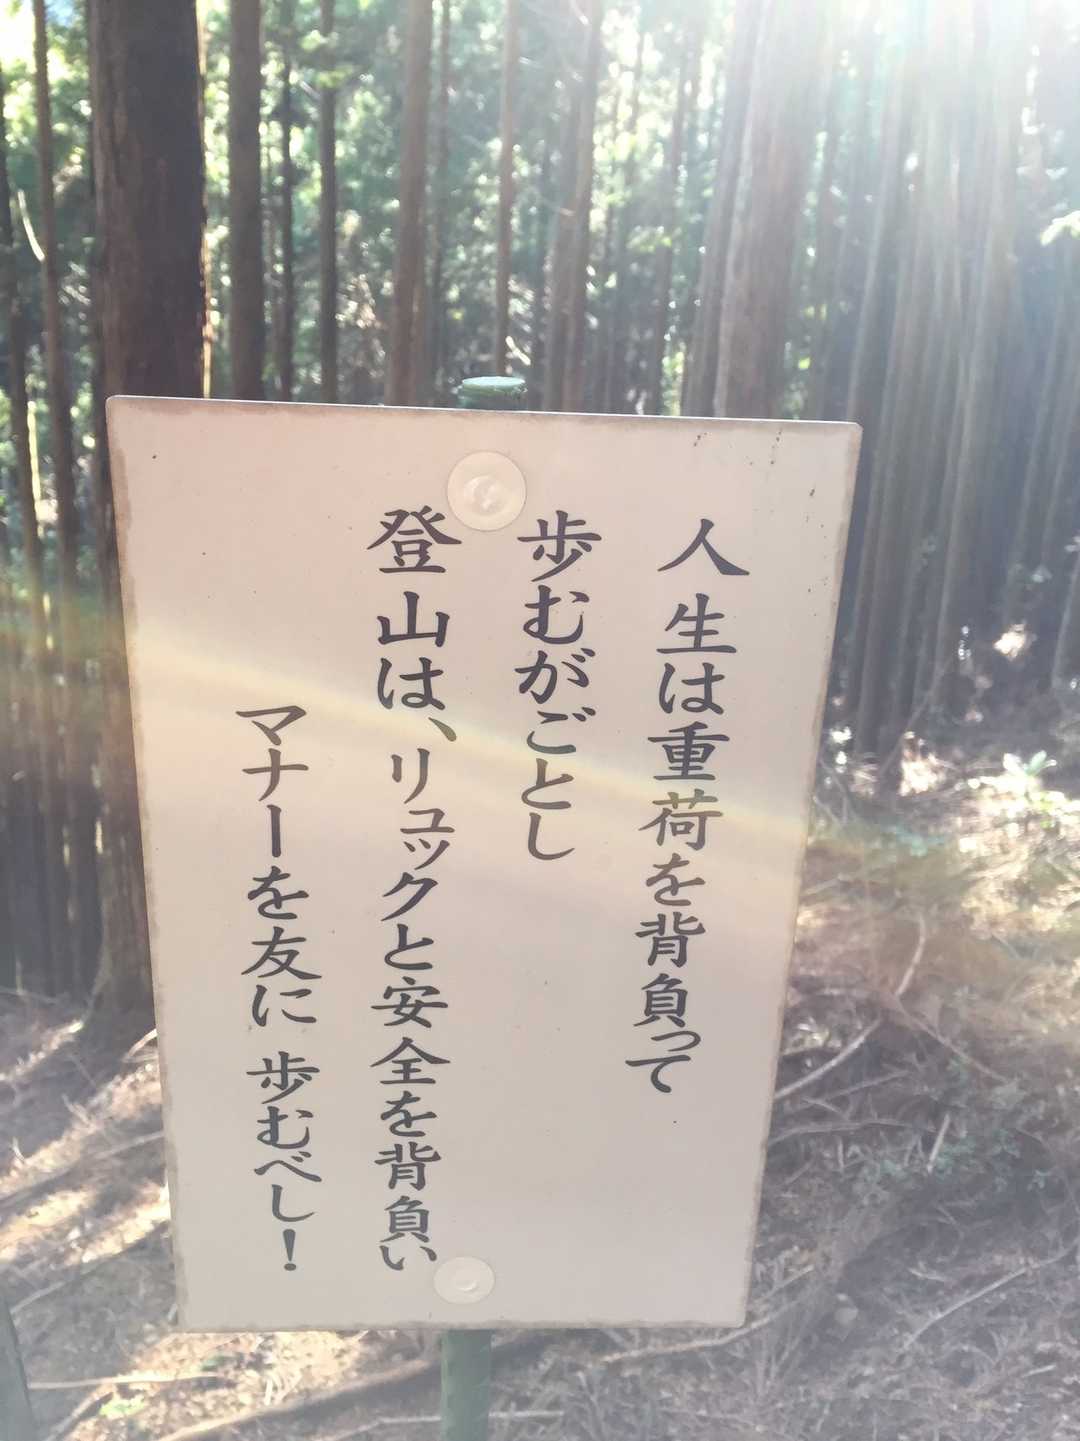 人生は重荷を背負って
歩むがごとし
登山は、リュックと安全を背負い
マナーを友に 歩むべし！